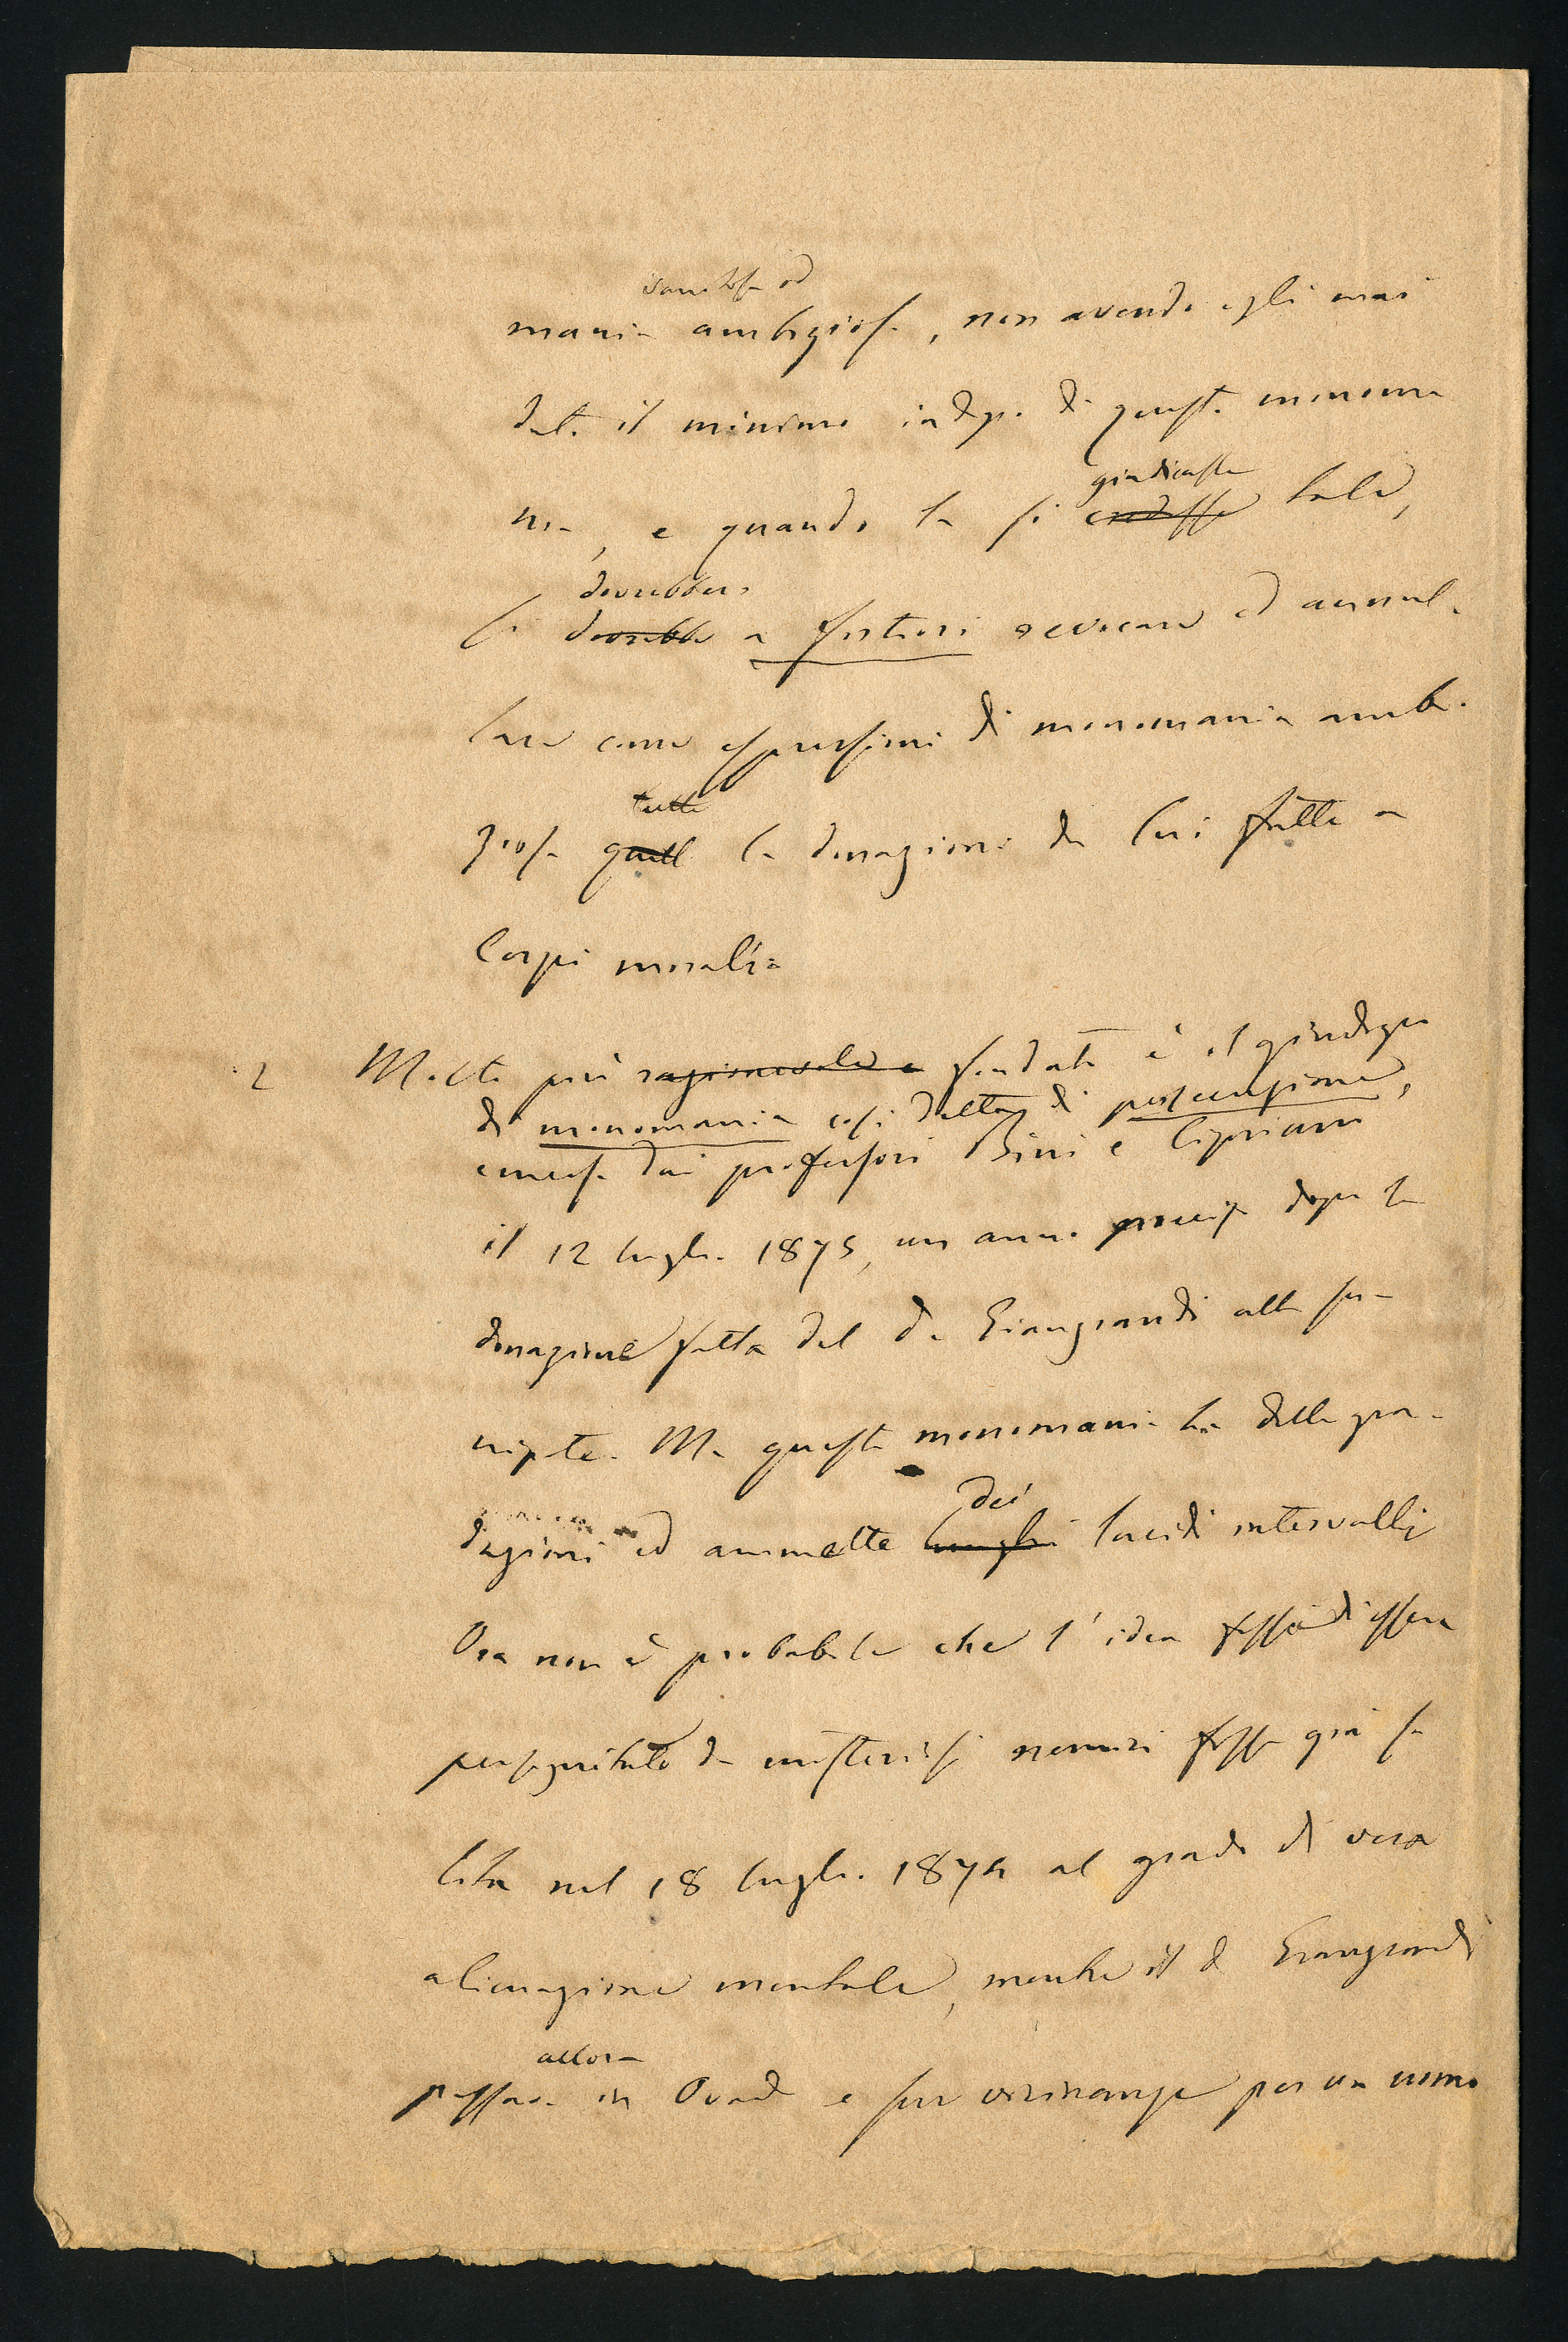 vanitosa od
mania ambiziosa, non avendo egli mai
dato il minimo indizio di questa monoma
nia, e quando la si giudicasse credesse tale,
si dovrebbero dovrebbe a fortiori revocare ed annul-
lare come espressioni di monomania ambi-
ziosa tutte quell le donazioni da lui fatte a
Corpi morali=
2 Molto più ragionevole e fondato è il giudizio
di monomania così detta di persecuzione,
emesso dai professori Bini e Cipriani
il 12 luglio 1875, un anno preciso dopo la
donazione fatta dal d. Giangrandi alla sua
nipote. Ma questa monomania ha delle gra-
dazioni ed ammette dei lunghi lucidi intervalli
Ora non è probabile che l'idea fissa di essere
perseguitato da misteriosi nemici fosse già sa
lita nel 18 luglio 1874 al grado di vera
alienazione mentale, mentre il d. Giangrandi
passava allora in Ovad e sue vicinanze per un uomo